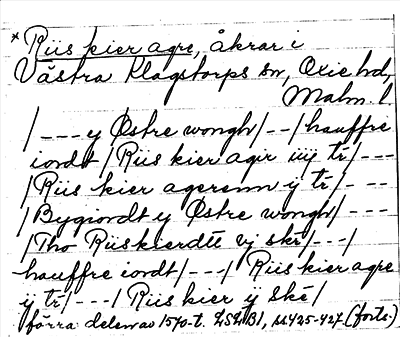 * Riis kier agre, åkrar i
Västra Klagstorps sn, Oxie hd,
Malm. l
/ --- y Østre wongh/ -- / hauffre
iordt / Riis kier agir iiij tr/ ---
/ Riis kier agerenn y tr/ - --
/ Bygiordt y Østre wongh/ ---
/ Tho Riiskierdtt vj skr/ ---/
hauffre iordt/ ---/ Riis kier agre
ij tr/ ---/ Riis kier ij Ske/
förra delen av 1570-t. LSLB1, s. 425-427. (forts.)